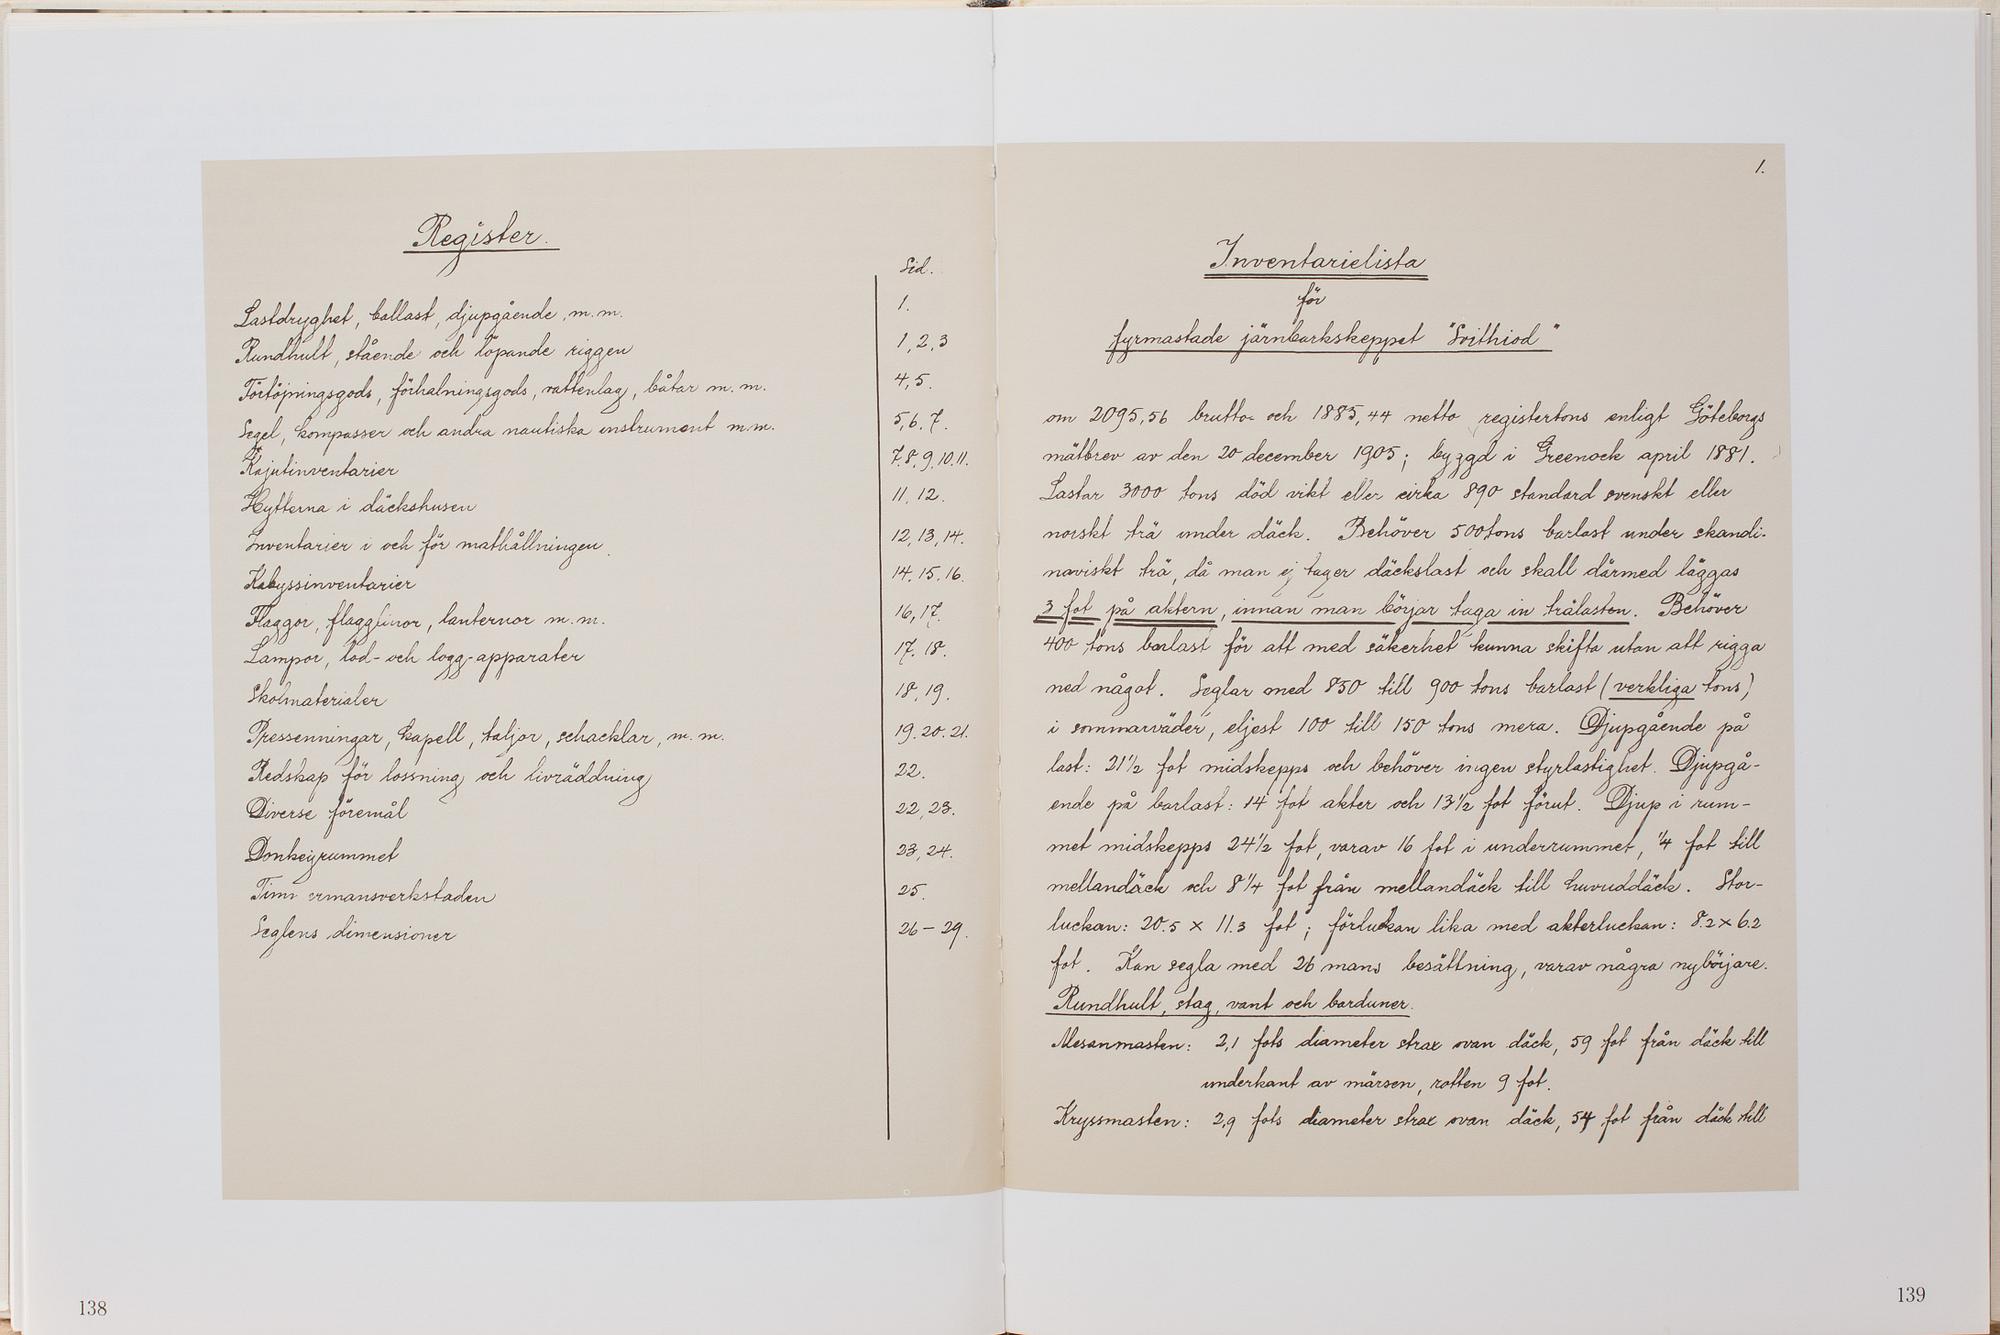 Register.
Sid.
Lastdryghet, ballast, djupgående, m.m. 1.
Rundhult, stående och löpande riggen 1, 2, 3
Förtöjningsgods, förhalningsgods, vattenlag, båtar m. m. 4, 5.
Segel, kompasser och andra nautiska instrument m.m. 5, 6. 7.
Kajutinventarier 7. 8. 9. 10. 11.
Hytterna i däckshusen 11. 12.
Inventarier i och för mathållningen. 12, 13, 14.
Kabyssinventarier 14. 15. 16.
Flaggor, flagglinor, lanternor m. m. 16, 17.
Lampor, lod- och logg-apparater 17. 18.
Skolmaterialer 18, 19.
Pressenningar, kapell, taljor, schacklar, m. m. 19. 20. 21.
Redskap för lossning och livräddning 22.
Diverse föremål 22, 23.
Donkeyrummet 23, 24.
Timmermansverkstaden 25.
Seglens dimensioner 26 – 29.
138
1.
Inventarielista
för
fyrmastade järnbarkskeppet "Svithiod"
om 2095,56 brutto- och 1885,44 netto registertons enligt Göteborgs
mätbrev av den 20 december 1905; byggd i Greenock april 1881.
Lastar 3000 tons död vikt eller cirka 890 standard svenskt eller
norskt trä under däck. Behöver 500 tons barlast under skandi-
naviskt trä, då man ej tager däckslast och skall därmed läggas
3 fot på aktern, innan man börjar taga in trälasten. Behöver
400 tons barlast för att med säkerhet kunna skifta utan att rigga
ned något. Seglar med 850 till 900 tons barlast (verkliga tons)
i sommarväder, eljest 100 till 150 tons mera. Djupgående på
last: 21 1/2 fot midskepps och behöver ingen styrlastighet. Djupgå-
ende på barlast: 14 fot akter och 13 1/2 fot förut. Djup i rum-
met midskepps 24 1/2 fot, varav 16 fot i underrummet, 1/4 fot till
mellandäck och 8 1/4 fot från mellandäck till huvuddäck. Stor-
luckan: 20.5 × 11.3 fot; förluckan lika med akterluckan: 8.2 × 6.2
fot. Kan segla med 26 mans besättning, varav några nybörjare.
Rundhult, stag, vant och barduner.
Mesanmasten: 2,1 fots diameter strax ovan däck, 59 fot från däck till
underkant av märsen, rotten 9 fot.
Kryssmasten: 2,9 fots diameter strax ovan däck, 54 fot från däck till
139